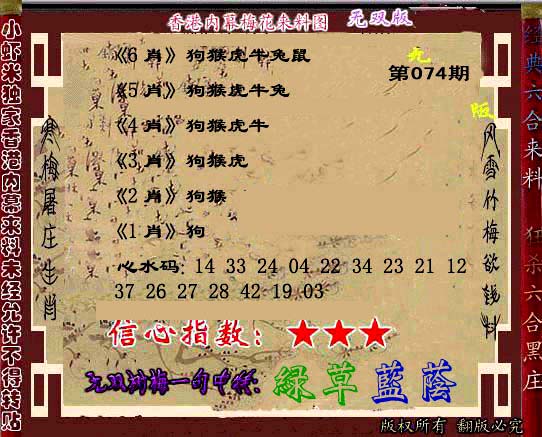 香港内幕梅花来料图 无双版
小虾米独家香港内幕来料未经允许不得转贴
寒梅屠庄生肖
《6肖》狗猴虎牛兔鼠
《5肖》狗猴虎牛兔
《4肖》狗猴虎牛
《3肖》狗猴虎
《2肖》狗猴
《1肖》狗
第074期
心水码: 14 33 24 04 22 34 23 21 12
37 26 27 28 42 19 03
信心指数: ★★★
緑草藍蔭
风雪竹梅欲钱料
经典六合来料 狂杀六合黑庄
版权所有 翻版必究